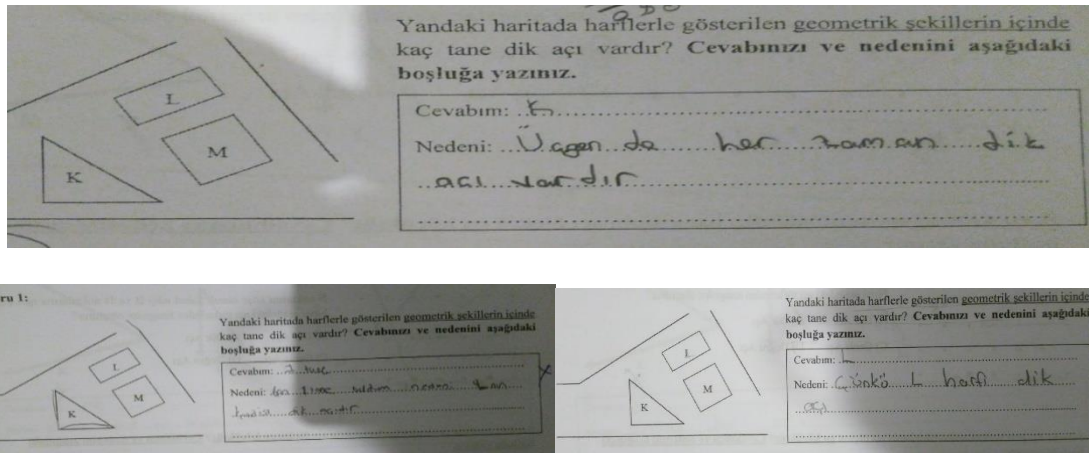 Yandaki haritada harflerle gösterilen geometrik şekillerin içinde
kaç tane dik açı vardır? Cevabınızı ve nedenini aşağıdaki
boşluğa yazınız.
L
M
K
Cevabım: K
Nedeni: Üçgen de her zaman dik
açı vardır
ru 1:
Yandaki haritada harflerle gösterilen geometrik şekillerin içinde
kaç tane dik açı vardır? Cevabınızı ve nedenini aşağıdaki
boşluğa yazınız.
L
M
K
Cevabım:
Nedeni:
dik açıdır
Yandaki haritada harflerle gösterilen geometrik şekillerin içinde
kaç tane dik açı vardır? Cevabınızı ve nedenini aşağıdaki
boşluğa yazınız.
L
M
K
Cevabım: L
Nedeni: Çünkü L harfi dik
açı